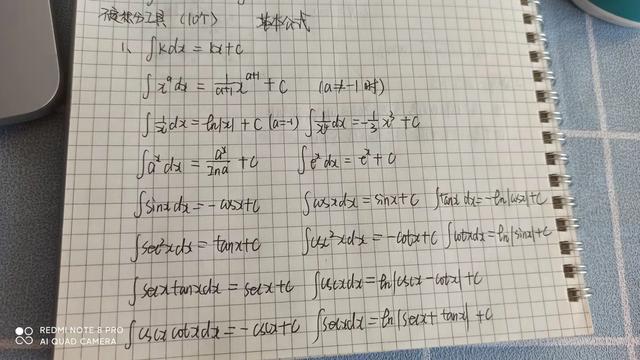 不定积分工具（10个） 基本公式
1、∫kdx = kx+C
∫x^a dx = 1/(a+1) x^(a+1) + C (a≠-1时)
∫1/x dx = ln|x| + C (a=-1) ∫1/x⁴ dx = -1/3 x³ + C
∫a^x dx = a^x/lna + C ∫e^x dx = e^x + C
∫sinx dx = -cosx+C ∫cosxdx = sinx+C ∫tanx dx = -ln|cosx|+C
∫sec²xdx = tanx+C ∫csc²xdx = -cotx+C ∫cotxdx = ln|sinx|+C
∫secxtanxdx = secx+C ∫cscxdx = ln|cscx-cotx|+C
∫cscxcotxdx = -cscx+C ∫secxdx = ln|secx+tanx|+C
REDMI NOTE 8 PRO
AI QUAD CAMERA